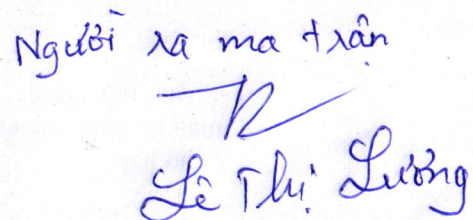 Người ra ma trận
Lê Thị Lương